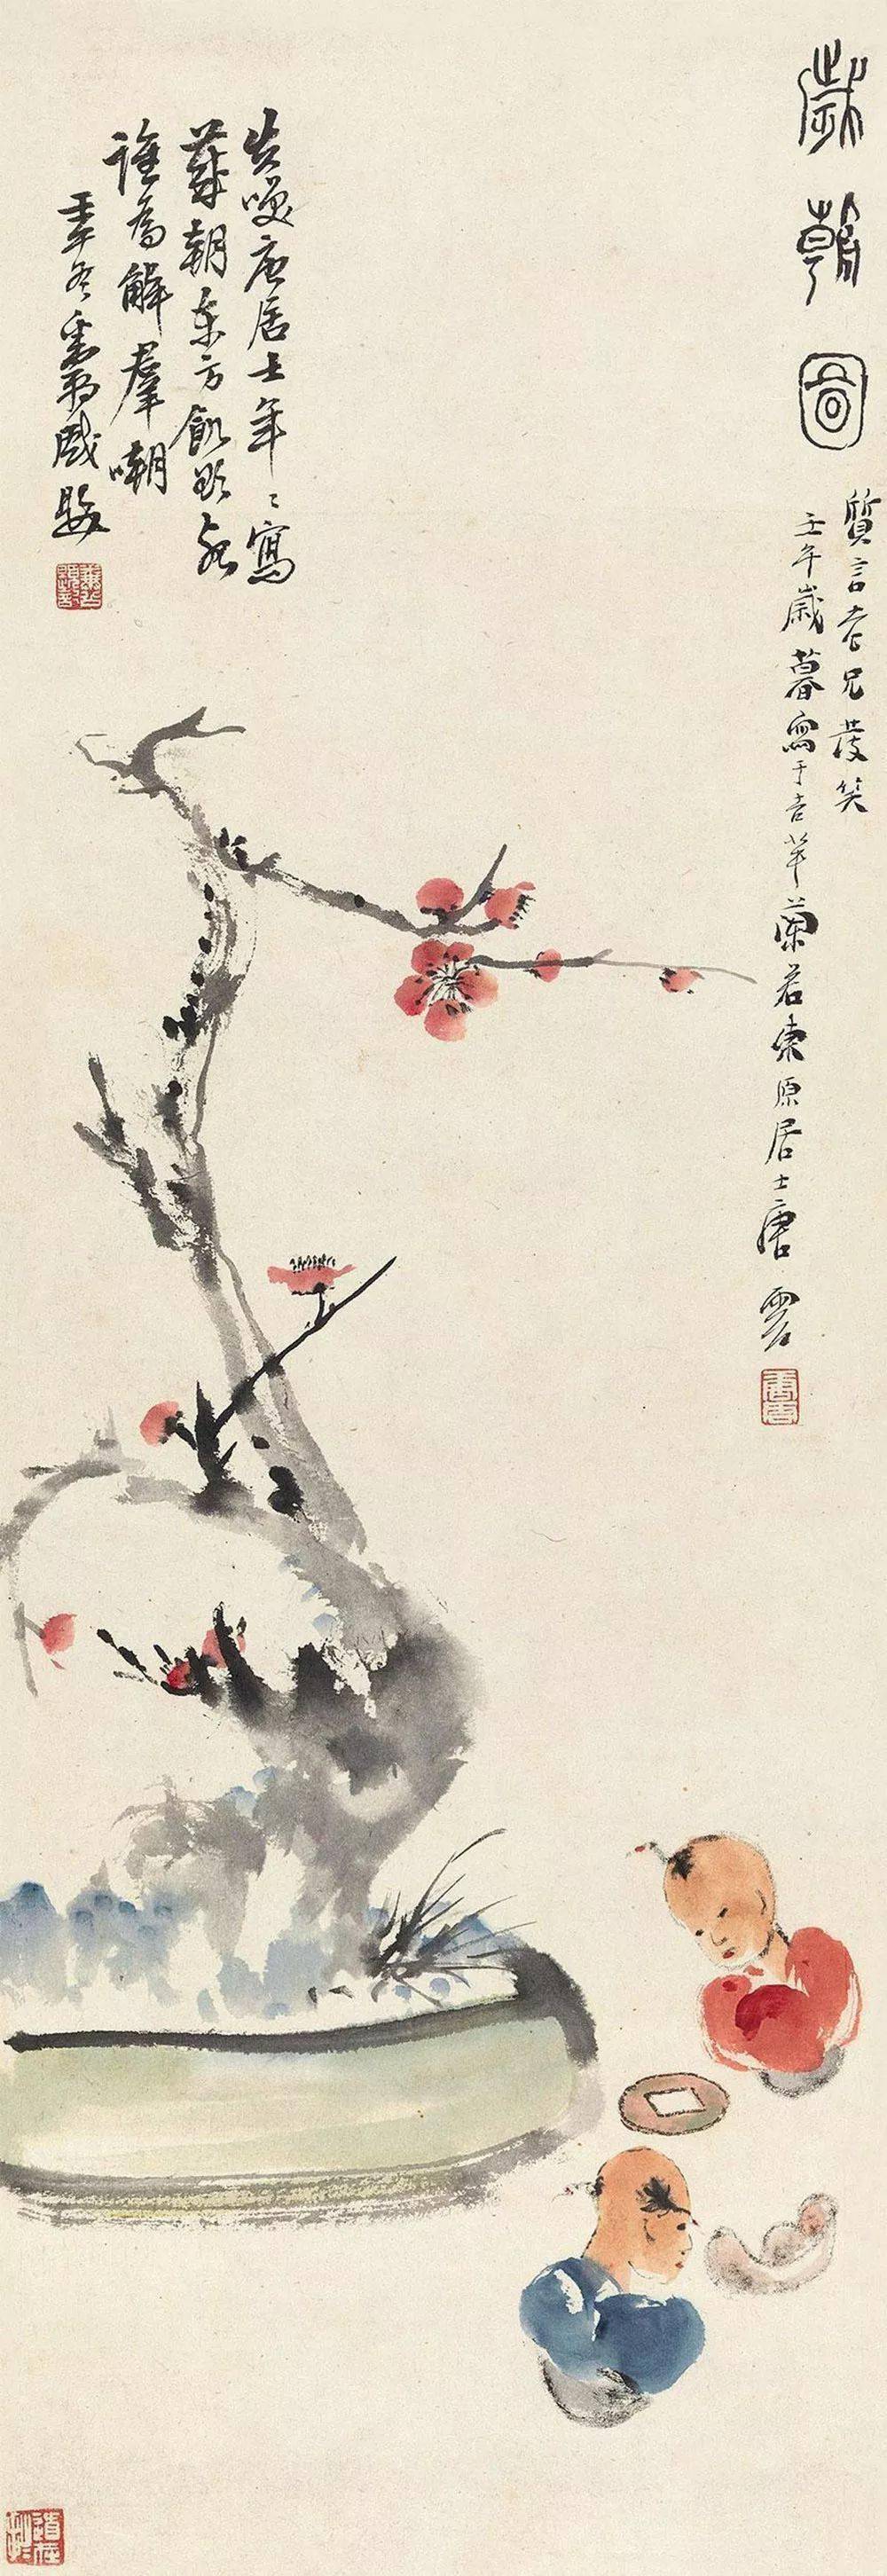 歲朝圖
質言老兄發笑
壬午歲暮寫于吉羊蘭若東原居士唐雲
唐雲
失咲唐居士年〻寫
歲朝東方飢欲死
誰為解羣嘲
壬午冬戲題